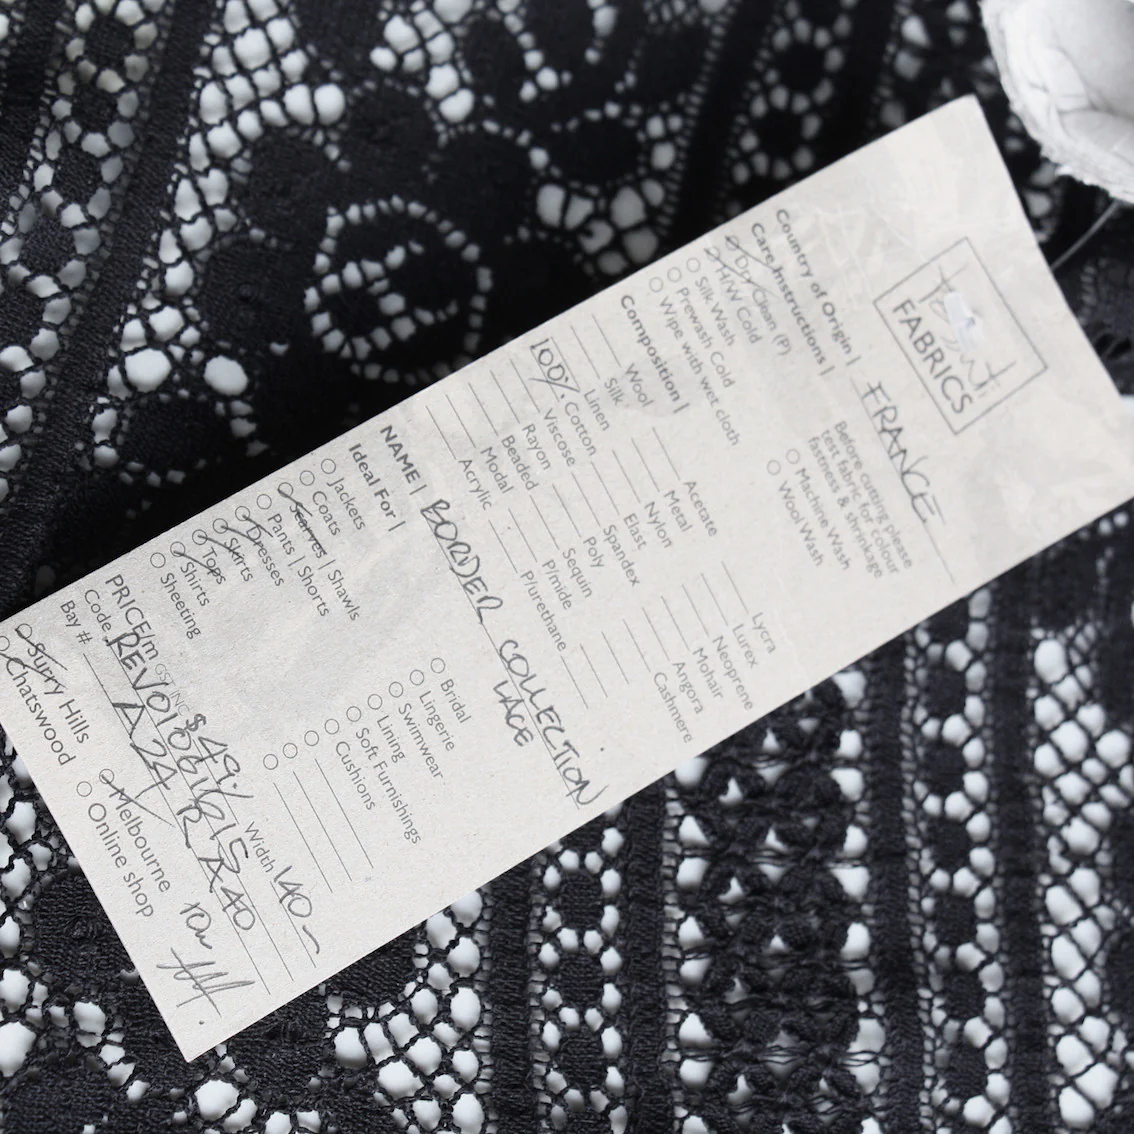 FABRICS
Country of Origin | FRANCE
Care Instructions |
Dry Clean (P)
H/W Cold
Silk Wash
Prewash Cold
Wipe with wet cloth
Before cutting please
test fabric for colour
fastness & shrinkage
Machine Wash
Wool Wash
Composition |
Wool
Silk
Linen
100% Cotton
Viscose
Rayon
Beaded
Modal
Acrylic
Acetate
Metal
Nylon
Elast
Spandex
Poly
Sequin
P/mide
P/urethane
Lycra
Lurex
Neoprene
Mohair
Angora
Cashmere
NAME | BORDER COLLECTION
LACE
Ideal For |
Jackets
Coats
Scarves | Shawls
Pants | Shorts
Dresses
Skirts
Tops
Shirts
Sheeting
Bridal
Lingerie
Swimwear
Lining
Soft Furnishings
Cushions
PRICE/m GST INC $49.% Width 140
Code
Bay # A24 R A40
Surry Hills
Chatswood
Melbourne
Online shop